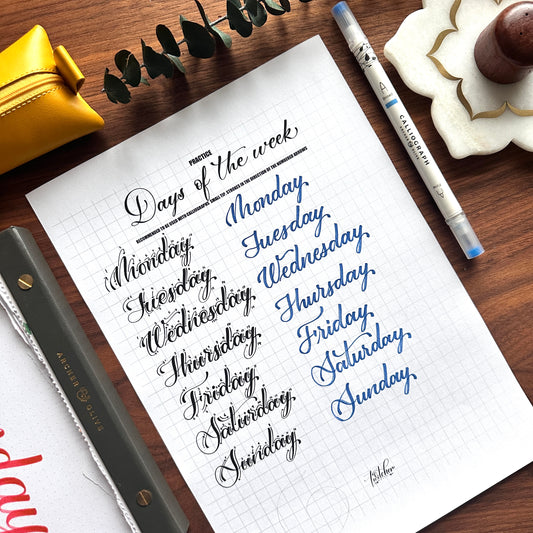 PRACTICE
Days of the week
RECOMMENDED TO BE USED WITH CALLIOGRAPH SMALL TIP. STROKES IN THE DIRECTION OF THE NUMBERED ARROWS
Monday
Tuesday
Wednesday
Thursday
Friday
Saturday
Sunday
Monday
Tuesday
Wednesday
Thursday
Friday
Saturday
Sunday
CALLIOGRAPH
ARCHER & OLIVE
day